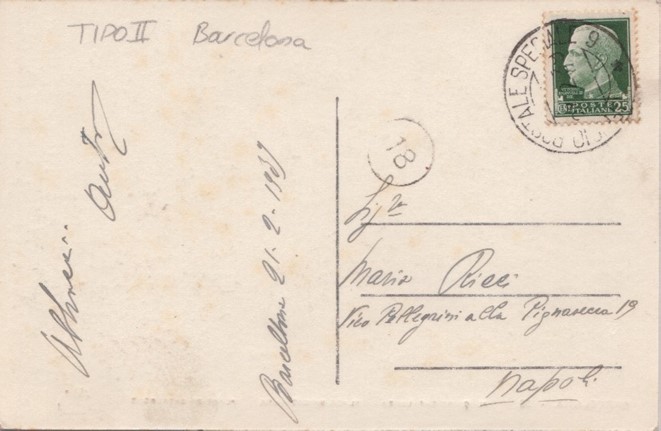 TIPO II Barcelona
POSTE
ITALIANE
25
POSTALE SPECIALE 9
18
Barcellona 21-2-1939
Sig.ra
Maria Ricci
Vico Pellegrini alla Pignasecca 19
Napoli